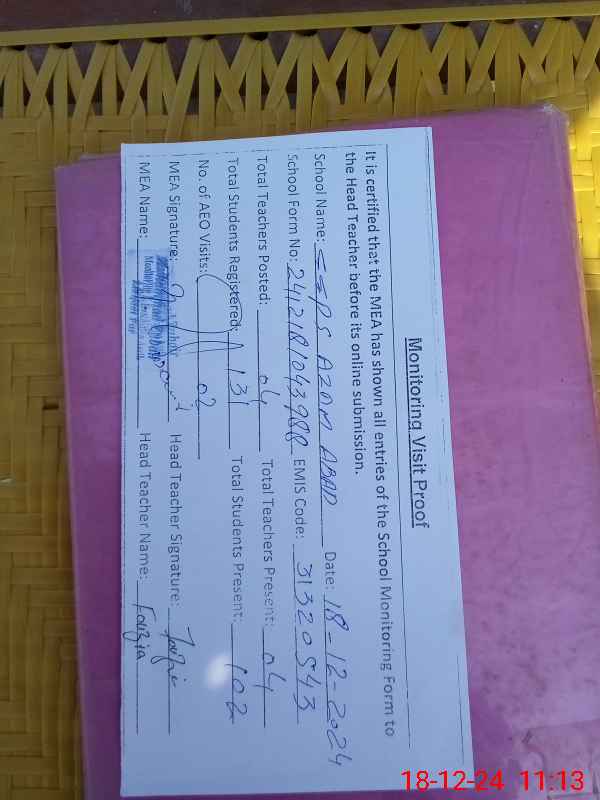 Monitoring Visit Proof
It is certified that the MEA has shown all entries of the School Monitoring Form to
the Head Teacher before its online submission.
School Name: GGPS AZAM ABAD Date: 18-12-2024
School Form No: 2412181043988 EMIS Code: 31320543
Total Teachers Posted: 04 Total Teachers Present: 04
Total Students Registered: 131 Total Students Present: 102
No. of AEO Visits: 02
MEA Signature: Head Teacher Signature: Fouzia
MEA Name: Head Teacher Name: Fouzia
18-12-24 11:13